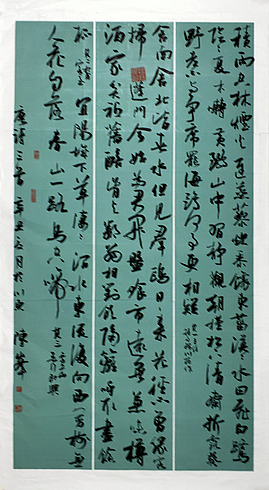 積雨空林煙火遲蒸藜炊黍餉東菑漠漠水田飛白鷺
陰陰夏木囀黃鸝山中習靜觀朝槿松下清齋折露葵
野老與人爭席罷海鷗何事更相疑
舍南舍北皆春水但見群鷗日日來花徑不曾緣客
掃蓬門今始為君開盤飧市遠無兼味樽
酒家貧只舊醅肯與鄰翁相對飲隔籬呼取盡餘
杯 宜陽城下草萋萋澗水東流復向西芳樹無
人花自落春山一路鳥空啼 其三
唐詩三首 辛丑 月於 陳